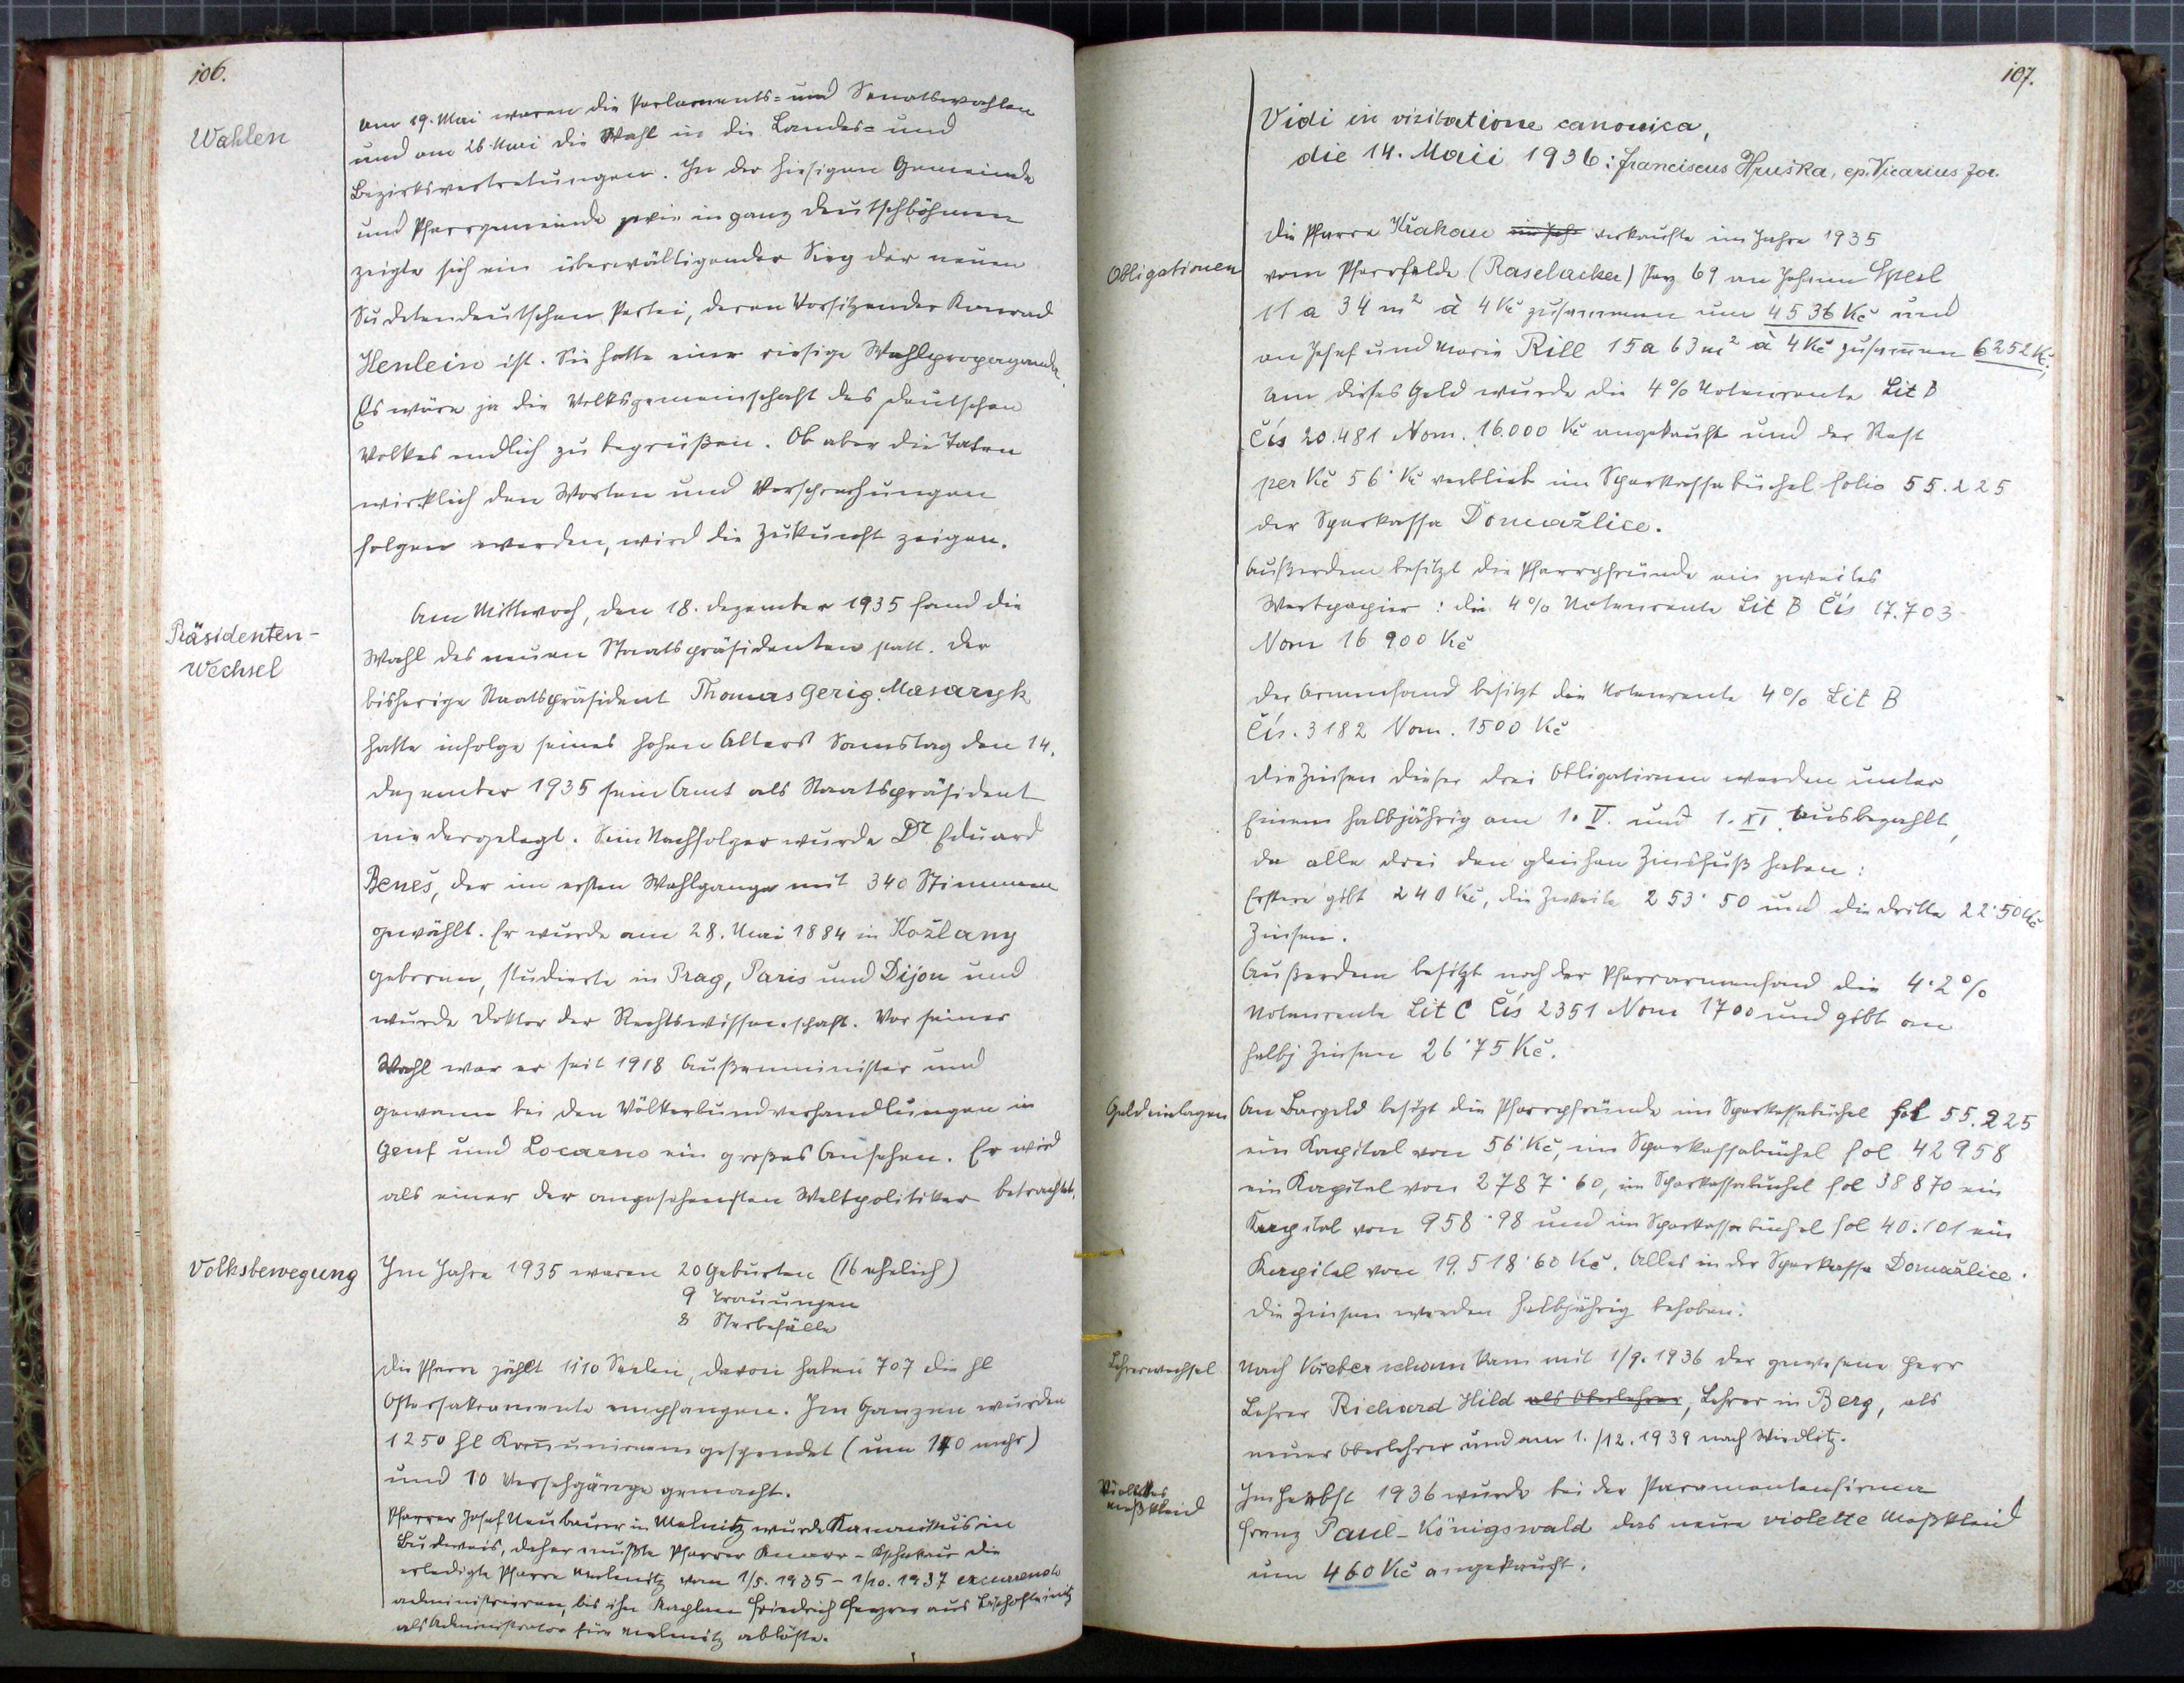 106.
Wahlen
Am 19. Mai waren die Parlaments- und Senatswahlen
und am 26. Mai die Wahl in die Landes- und
Bezirksvertretungen. In der hiesigen Gemeinde
und Pfarrgemeinde wie in ganz Deutschböhmen
zeigte sich ein überwältigender Sieg der neuen
Sudetendeutschen Partei, deren Vorsitzender Konrad
Henlein ist. Sie hatte eine riesige Wahlpropaganda.
Es wäre ja die Volksgemeinschaft des deutschen
Volkes endlich zu begrüßen. Ob aber die Taten
wirklich den Worten und Versprechungen
folgen werden, wird die Zukunft zeigen.
Präsidenten-
wechsel
Am Mittwoch, den 18. Dezember 1935 fand die
Wahl des neuen Staatspräsidenten statt. Der
bisherige Staatspräsident Thomas Gerig. Masaryk
hatte infolge seines hohen Alters Samstag den 14.
Dezember 1935 sein Amt als Staatspräsident
niedergelegt. Sein Nachfolger wurde Dr. Eduard
Beneš, der im ersten Wahlgange mit 340 Stimmen
gewählt. Er wurde am 28. Mai 1884 in Kožlany
geboren, studierte in Prag, Paris und Dijon und
wurde Doktor der Rechtswissenschaft. Vor seiner
Wahl war er seit 1918 Außenminister und
gewann bei den Völkerbundverhandlungen in
Genf und Locarno ein großes Ansehen. Er wird
als einer der angesehensten Weltpolitiker betrachtet.
Volksbewegung
Im Jahre 1935 waren 20 Geburten (16 ehelich)
9 Trauungen
8 Sterbefälle
Die Pfarre zählt 1110 Seelen, davon haben 707 die hl
Ostersakramente empfangen. Im Ganzen wurden
1250 hl Kom̅unionen gespendet (um 140 mehr)
und 10 Versehgänge gemacht.
Pfarrer Josef Neubauer in Melnitz wurde Kanonikus in
Budweis, daher mußte Pfarrer die
erledigte Pfarre Melnitz vom 1/5. 1935 - 1/10. 1937 excurrendo
administrieren, bis ihn Kaplan Friedrich aus Bischofteinitz
als Administrator für Melnitz ablöste.
107.
Vidi in visitatione canonica,
die 14. Maii 1936: Franciscus Hruška, ep. Vicarius for.
Obligationen
Die Pfarre Krakau im Jahr verkaufte im Jahre 1935
vom Pfarrfelde (Raselacker) Parz 69 an Johann
11 a 34 m² à 4 Kč zusammen um 4536 Kč und
an Josef und Marie Rill 15 a 63 m² à 4 Kč zusam̅en 6252 Kč.
Um dieses Geld wurde die 4% Notenrente Lit B
Čís 20.481 Nom. 16.000 Kč angekauft und der Rest
per Kč 56· Kč verblieb im Sparkassabüchel folio 55.225
der Sparkassa Domažlice.
Außerdem besitzt die Pfarrpfründe ein zweites
Wertpapier: die 4% Notenrente Lit B Čís 17.703
Nom 16 900 Kč
Der Armenfond besitzt die Notenrente 4% Lit B
Čís. 3182 Nom. 1500 Kč
Die Zinsen dieser drei Obligationen werden unter
Einem halbjährig am 1. V. und 1. XI. ausbezahlt,
da alle drei den gleichen Zinsfuß haben:
Erstere gibt 240 Kč, die Zweite 253·50 und die dritte 22·50 Kč
Zinsen.
Außerdem besitzt noch der Pfarrarmenfond die 4·2%
Notenrente Lit C Čís 2351 Nom 1700 und gibt an
halbj Zinsen 26·75 Kč.
Geldeinlagen
An Bargeld besitzt die Pfarrpfründe im Sparkassabüchel fol 55.225
ein Kapital von 56· Kč, im Sparkassabüchel fol 42958
ein Kapital von 2787·60, im Sparkassabüchel fol 38870 ein
Kapital von 958·98 und im Sparkassabüchel fol 40.101 ein
Kapital von 19.518·60 Kč. Alles in der Sparkassa Domažlice.
Die Zinsen werden halbjährig behoben.
Lehrerwechsel
Nach kam mit 1/9. 1936 der gewesene Herr
Lehrer Richard Hild als Oberlehrer, Lehrer in Berg, als
neuer Oberlehrer und am 1./12. 1939 nach Wiedlitz.
Violettes
Meßkleid
Im Herbst 1936 wurde bei der Paramentenfirma
Franz Paul-Königswald das neue violette Meßkleid
um 460 Kč angekauft.